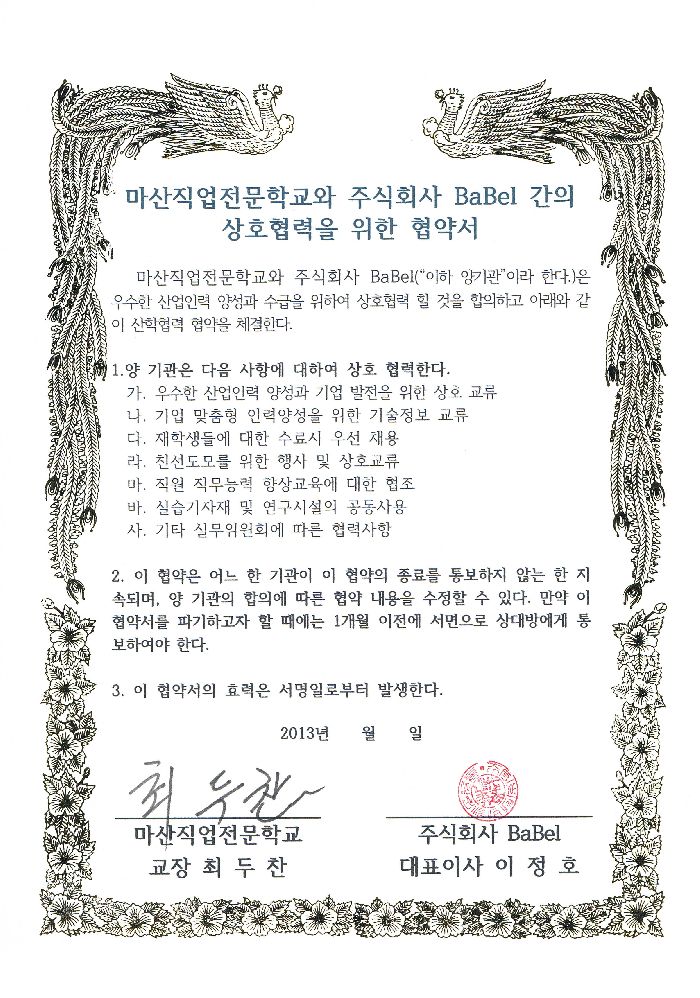 마산직업전문학교와 주식회사 BaBel 간의
상호협력을 위한 협약서
마산직업전문학교와 주식회사 BaBel("이하 양기관"이라 한다.)은
우수한 산업인력 양성과 수급을 위하여 상호협력 할 것을 합의하고 아래와 같
이 산학협력 협약을 체결한다.
1.양 기관은 다음 사항에 대하여 상호 협력한다.
가. 우수한 산업인력 양성과 기업 발전을 위한 상호 교류
나. 기업 맞춤형 인력양성을 위한 기술정보 교류
다. 재학생들에 대한 수료시 우선 채용
라. 친선도모를 위한 행사 및 상호교류
마. 직원 직무능력 향상교육에 대한 협조
바. 실습기자재 및 연구시설의 공동사용
사. 기타 실무위원회에 따른 협력사항
2. 이 협약은 어느 한 기관이 이 협약의 종료를 통보하지 않는 한 지
속되며, 양 기관의 합의에 따른 협약 내용을 수정할 수 있다. 만약 이
협약서를 파기하고자 할 때에는 1개월 이전에 서면으로 상대방에게 통
보하여야 한다.
3. 이 협약서의 효력은 서명일로부터 발생한다.
2013년 월 일
최두찬
마산직업전문학교
교장 최 두 찬
주식회사 BaBel
대표이사 이 정 호